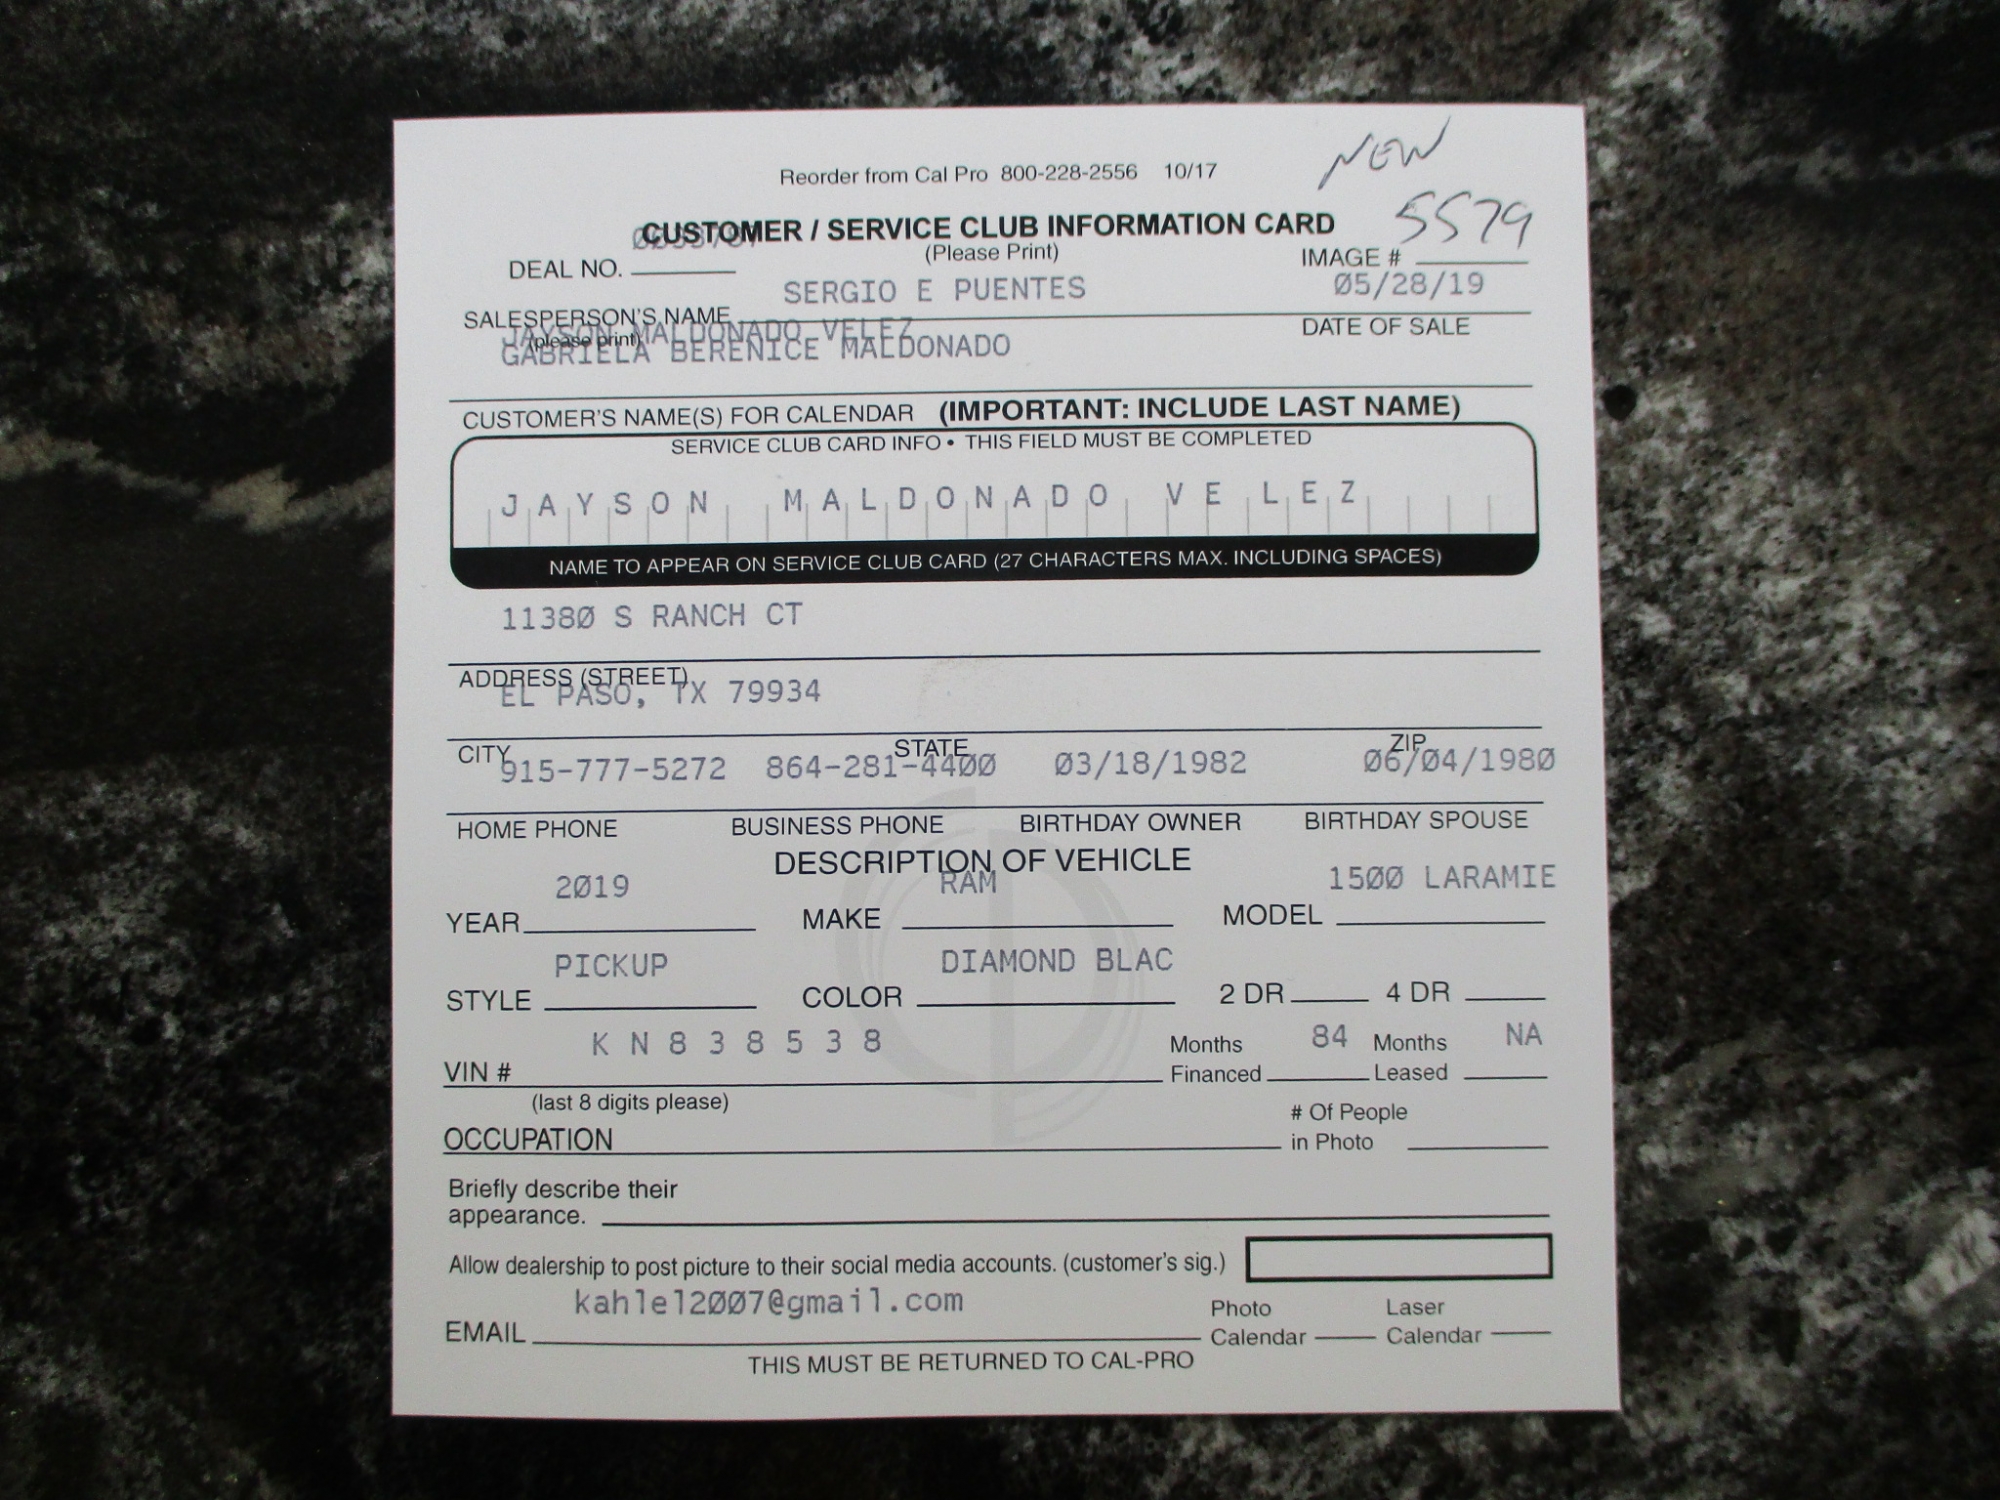 NEW
Reorder from Cal Pro 800-228-2556 10/17
CUSTOMER / SERVICE CLUB INFORMATION CARD 5579
DEAL NO. (Please Print) IMAGE #
SERGIO E PUENTES 05/28/19
SALESPERSON'S NAME DATE OF SALE
(please print) JAYSON MALDONADO VELEZ
GABRIELA BERENICE MALDONADO
CUSTOMER'S NAME(S) FOR CALENDAR (IMPORTANT: INCLUDE LAST NAME)
SERVICE CLUB CARD INFO • THIS FIELD MUST BE COMPLETED
JAYSON MALDONADO VELEZ
NAME TO APPEAR ON SERVICE CLUB CARD (27 CHARACTERS MAX. INCLUDING SPACES)
11380 S RANCH CT
ADDRESS (STREET)
EL PASO, TX 79934
CITY STATE ZIP
915-777-5272 864-281-4400 03/18/1982 06/04/1980
HOME PHONE BUSINESS PHONE BIRTHDAY OWNER BIRTHDAY SPOUSE
DESCRIPTION OF VEHICLE
2019 RAM 1500 LARAMIE
YEAR MAKE MODEL
PICKUP DIAMOND BLAC
STYLE COLOR 2 DR 4 DR
K N 8 3 8 5 3 8 Months 84 Months NA
VIN # Financed Leased
(last 8 digits please) # Of People
OCCUPATION in Photo
Briefly describe their
appearance.
Allow dealership to post picture to their social media accounts. (customer's sig.)
kahlel2007@gmail.com Photo Laser
EMAIL Calendar Calendar
THIS MUST BE RETURNED TO CAL-PRO